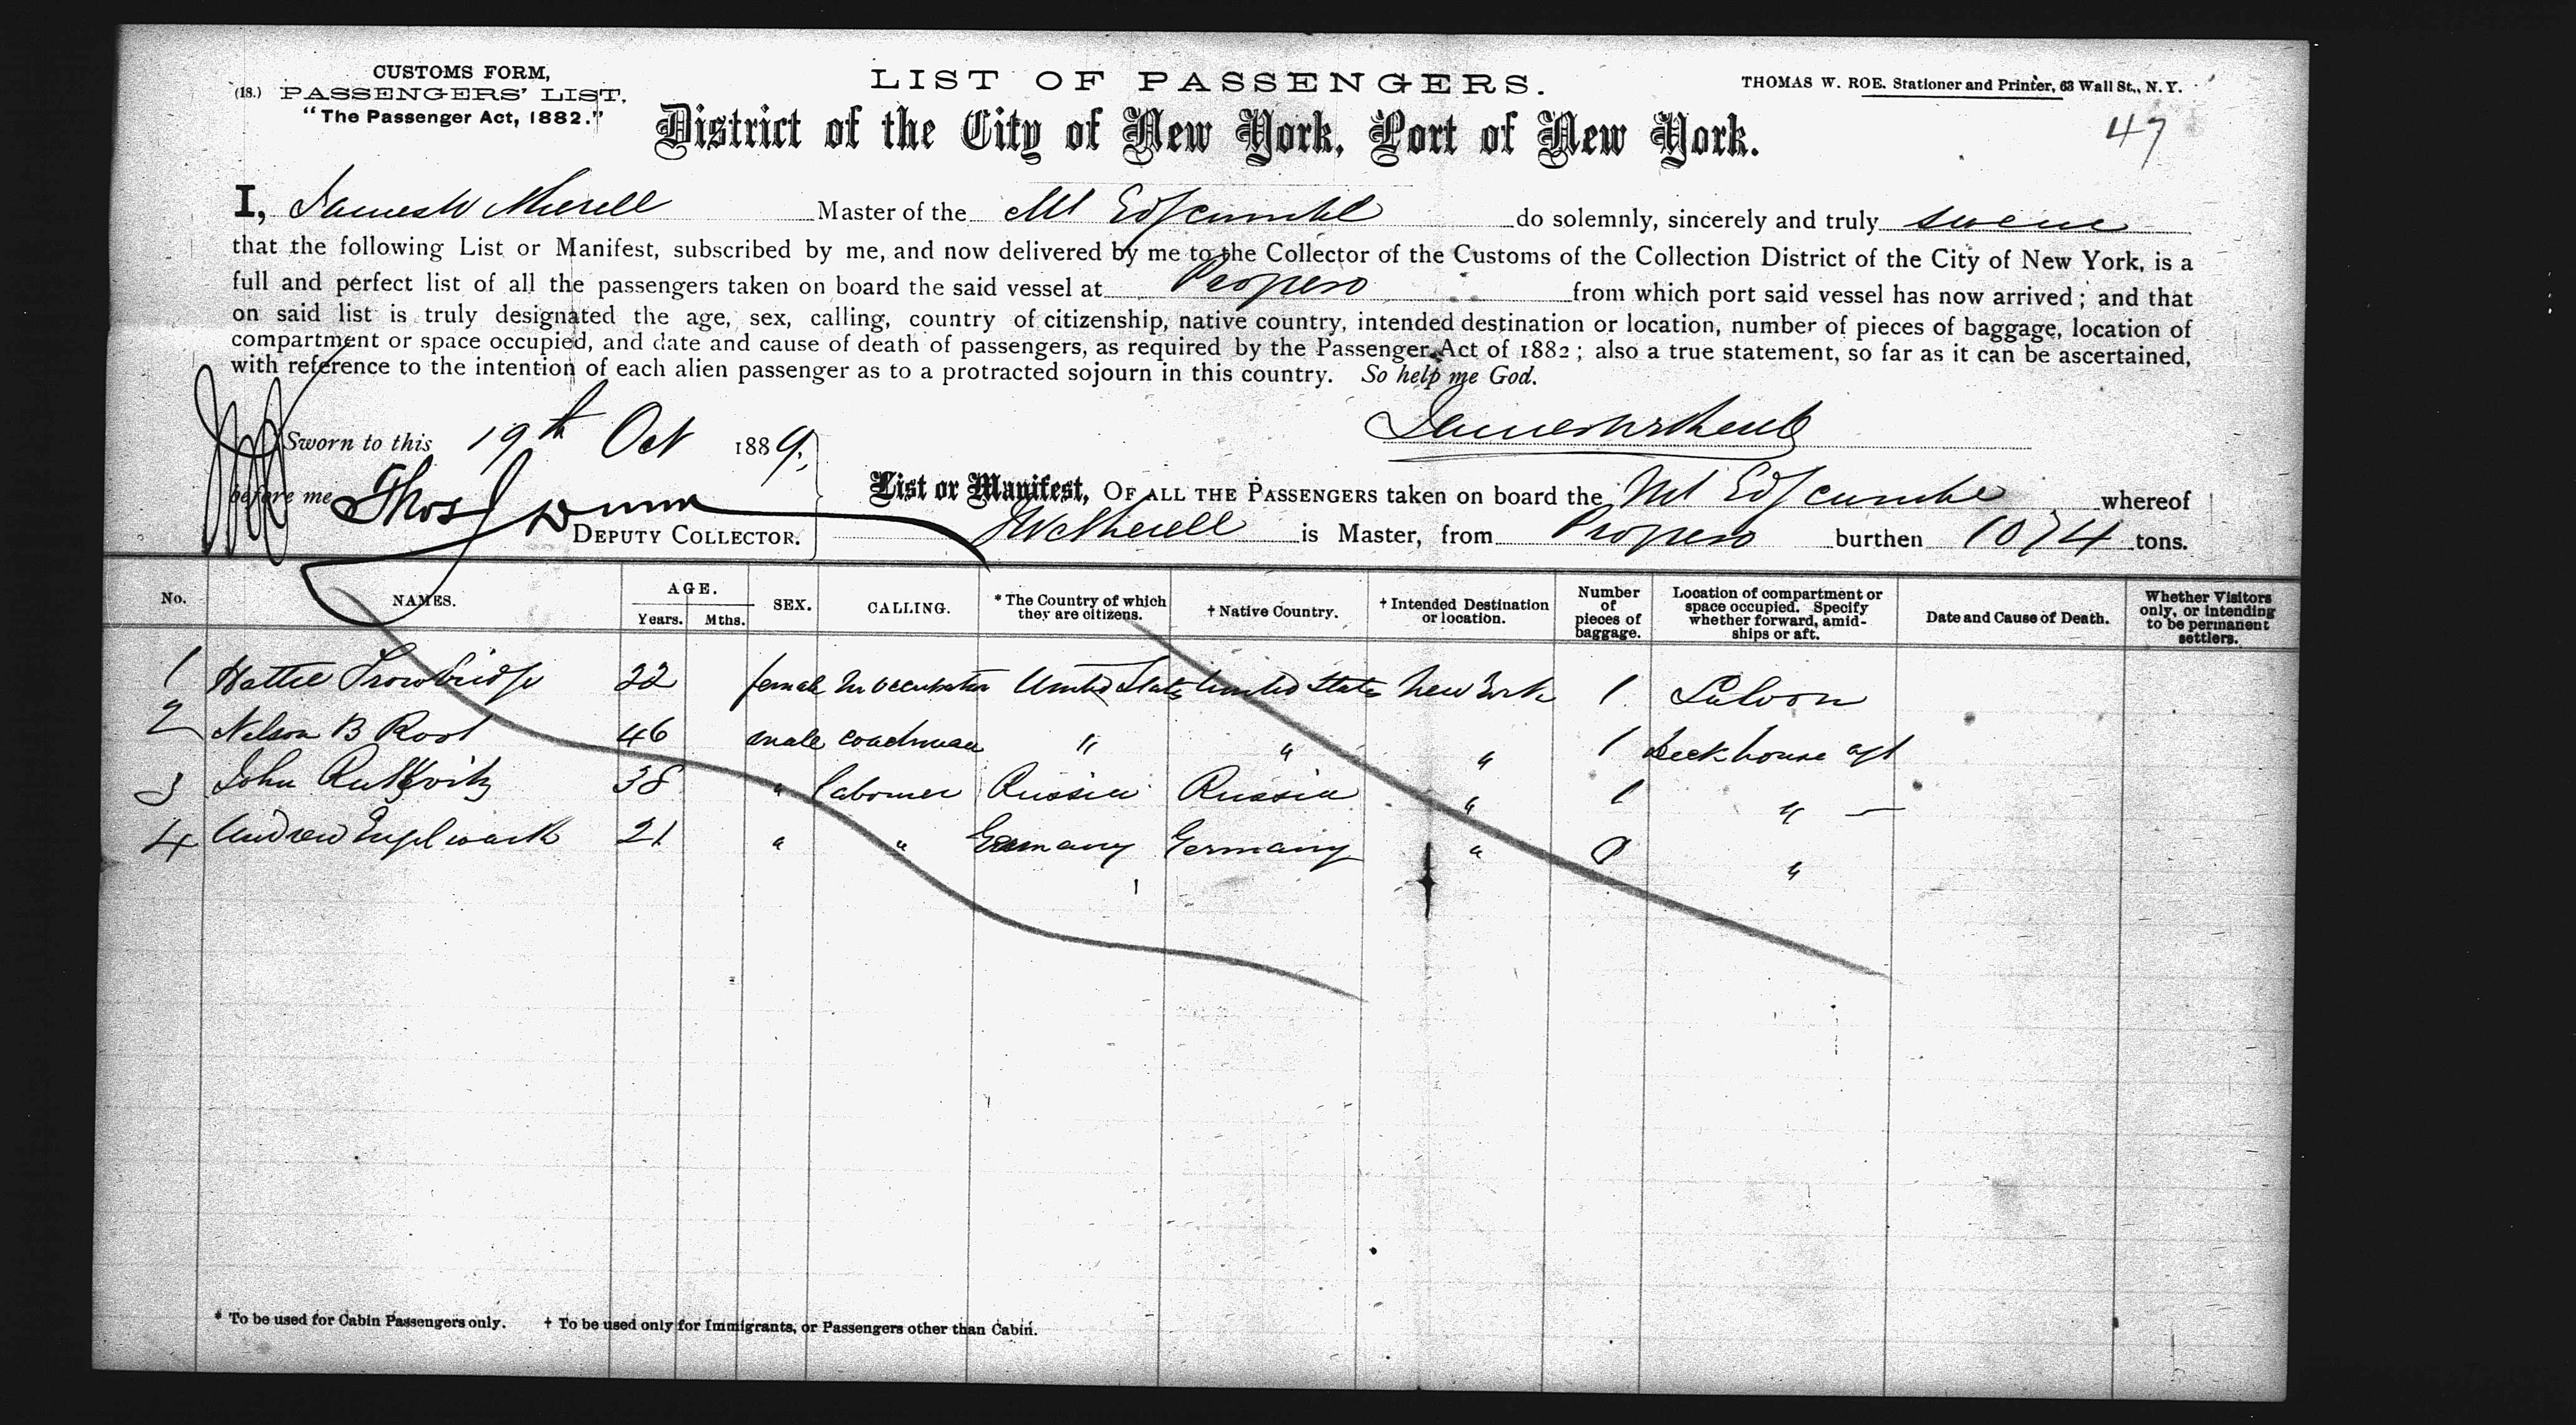 CUSTOMS FORM,
(18.) PASSENGERS' LIST,
"The Passenger Act, 1882."
LIST OF PASSENGERS.
THOMAS W. ROE. Stationer and Printer, 63 Wall St., N. Y.
District of the City of New York, Port of New York.
47
I, James W Master of the Mt Edgcumbe do solemnly, sincerely and truly
that the following List or Manifest, subscribed by me, and now delivered by me to the Collector of the Customs of the Collection District of the City of New York, is a
full and perfect list of all the passengers taken on board the said vessel at from which port said vessel has now arrived; and that
on said list is truly designated the age, sex, calling, country of citizenship, native country, intended destination or location, number of pieces of baggage, location of
compartment or space occupied, and date and cause of death of passengers, as required by the Passenger Act of 1882; also a true statement, so far as it can be ascertained,
with reference to the intention of each alien passenger as to a protracted sojourn in this country. So help me God.
Sworn to this 19th Oct 1889.
before me Thos J Dunn
DEPUTY COLLECTOR.
List or Manifest, OF ALL THE PASSENGERS taken on board the Mt Edgcumbe whereof
is Master, from burthen 1074 tons.
No. NAMES. AGE. Years. Mths. SEX. CALLING. * The Country of which they are citizens. † Native Country. † Intended Destination or location. Number of pieces of baggage. Location of compartment or space occupied. Specify whether forward, amidships or aft. Date and Cause of Death. Whether Visitors only, or intending to be permanent settlers.
1 Hattie Trowbridge 22 female no occupation United States United States New York 1 Saloon
2 Nelson B Root 46 male coachman " " " 1 deck house aft
3 John 38 " labourer Russia Russia " 1 " —
4 Andrew 21 " " Germany Germany " 0 "
* To be used for Cabin Passengers only. † To be used only for Immigrants, or Passengers other than Cabin.